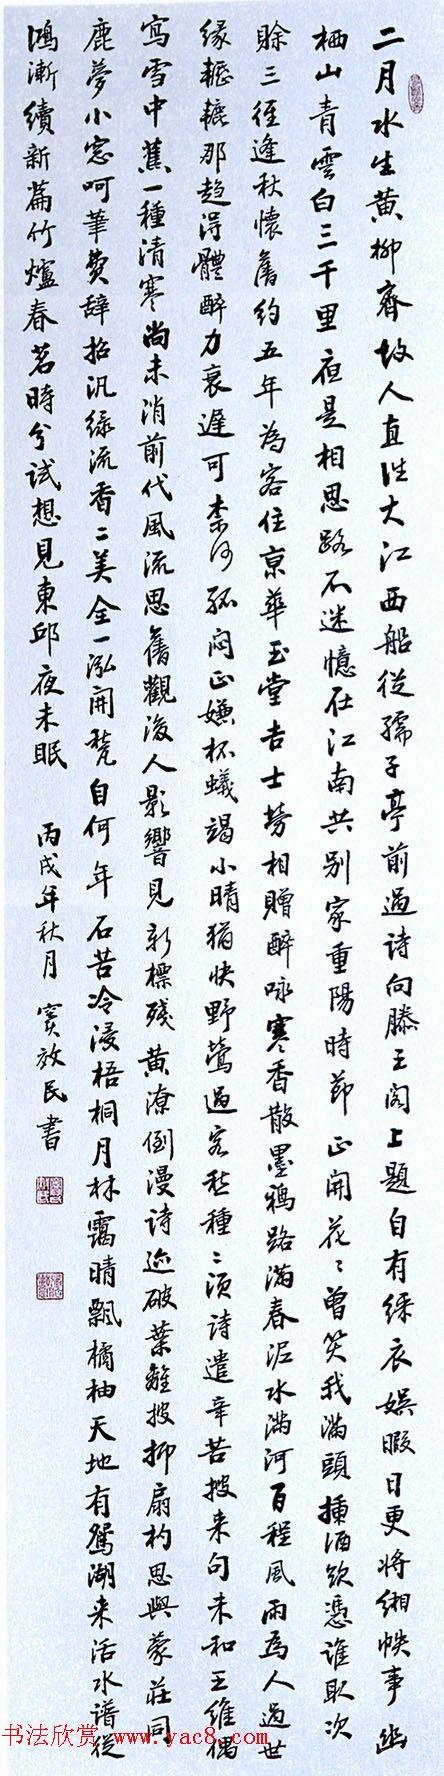 二月水生黄柳齊故人直泝大江西船從孺子亭前過詩向滕王閣上題自有綵衣娱暇日更将缃帙事幽
栖山青雲白三千里夜是相思路不迷憶在江南共别家重陽時節正開花〻曾笑我满頭插酒欲憑誰取次
賒三徑逢秋懷舊約五年為客住京華玉堂吉士勞相贈醉咏寒香散墨鴉路满春泥水满河百程風雨為人過世
缘轗轗那趋得體醉力衰遲可柰何孤闷正嫌杯蟻竭小晴猶快野鶯過客愁種〻須詩遣辛苦披来句未和王維偶
寫雪中蕉一種清寒尚未消前代風流思舊觀後人影響見新標残黄潦倒漫詩迹破葉離披抑扇杓思與蒙莊同
鹿夢小窓呵筆費辞招汎緑流香二美全一泓開甃自何年石苦冷浸梧桐月林靄晴飄橘柚天地有鴛湖来活水譜從
鴻漸續新篇竹爐春茗時兮試想見東邱夜未眠 丙戌年秋月 竇放民書
书法欣赏 www.yac8.com